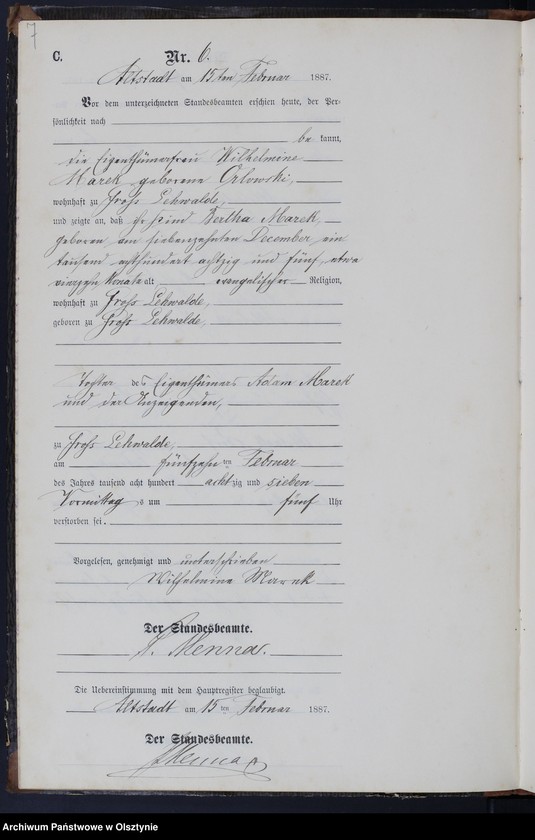 7
C.
Nr. 6.
Altstadt am 15ten Februar 1887.
Vor dem unterzeichneten Standesbeamten erschien heute, der Per-
sönlichkeit nach
be kannt,
die Eigenthümerfrau Wilhelmine
Marek geborene Orlowski,
wohnhaft zu Groß Lehwalde,
und zeigte an, daß Bertha Marek,
geboren am siebenzehnten December ein
tausend achthundert achtzig und fünf, etwa
vierzehn Monate alt evangelischer Religion,
wohnhaft zu Groß Lehwalde,
geboren zu Groß Lehwalde,
Tochter des Eigenthümers Adam Marek
und der Anzeigenden,
zu Groß Lehwalde,
am fünfzehn ten Februar
des Jahres tausend acht hundert acht zig und sieben
Vormittag s um fünf Uhr
verstorben sei.
Vorgelesen, genehmigt und unterschrieben
Wilhelmine Marek
Der Standesbeamte.
Menna.
Die Uebereinstimmung mit dem Hauptregister beglaubigt.
Altstadt am 15 ten Februar 1887.
Der Standesbeamte.
Menna
Archiwum Państwowe w Olsztynie